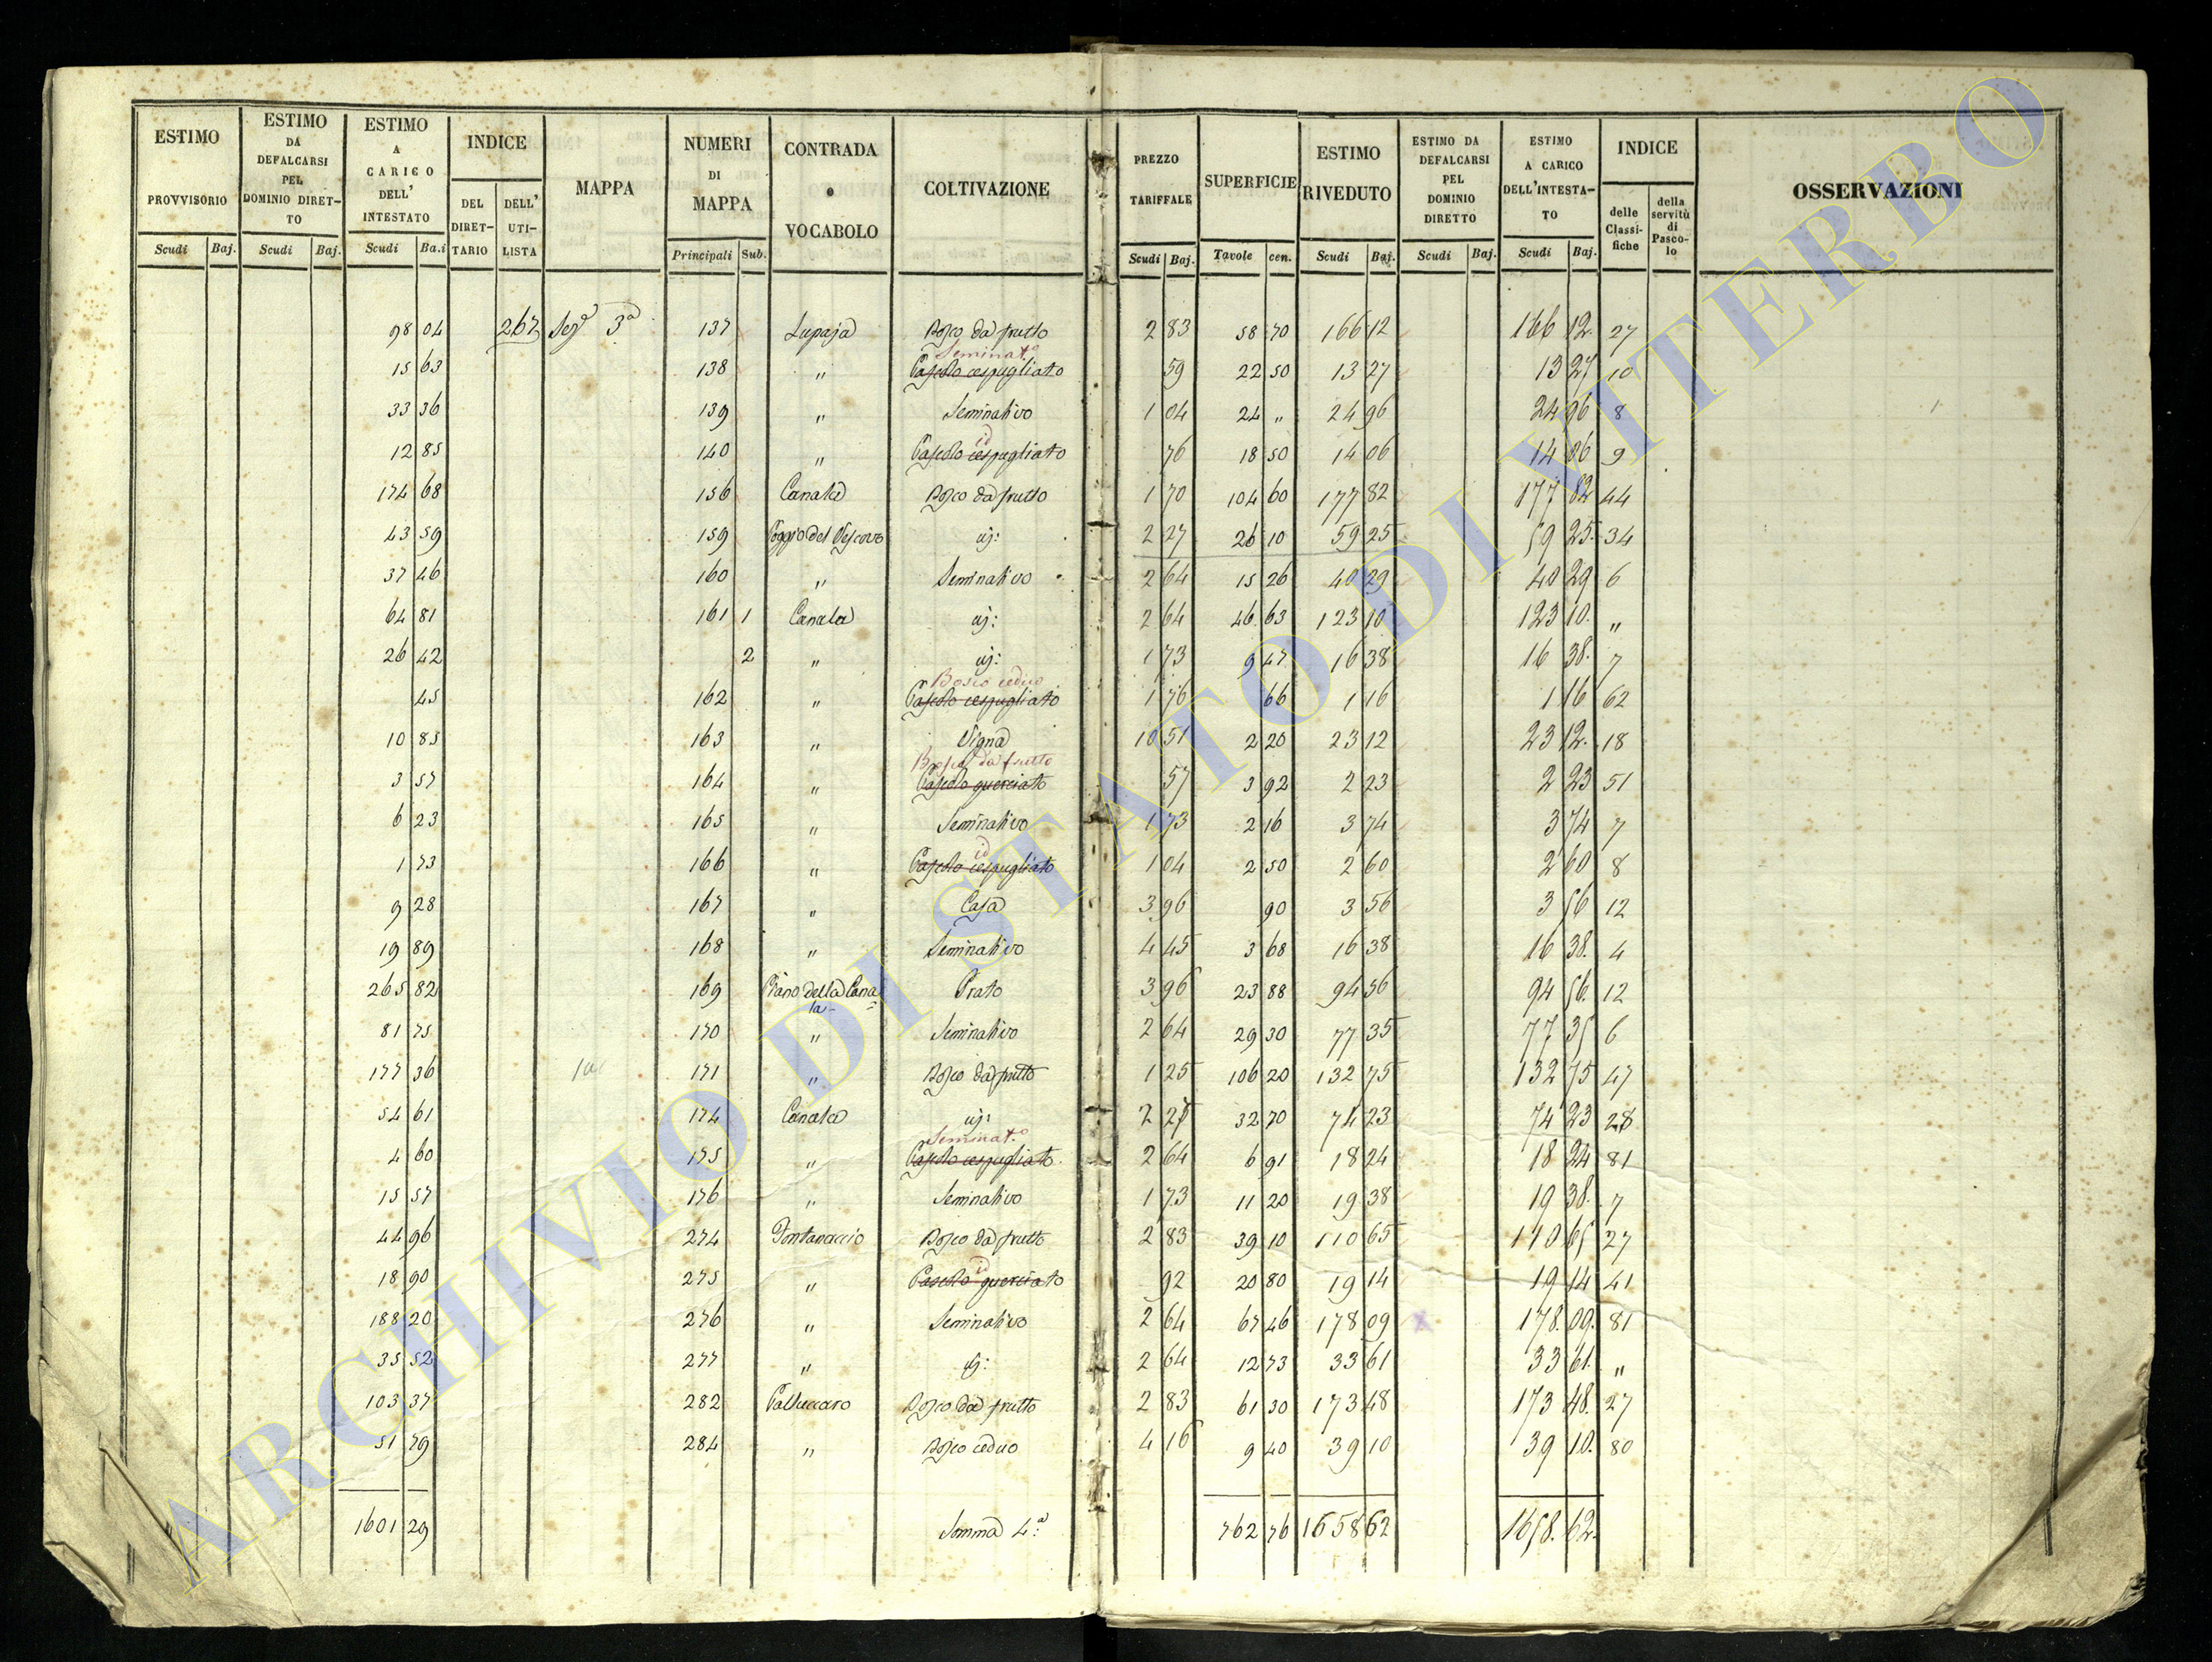 ESTIMO PROVVISORIO
Scudi Baj.
ESTIMO DA DEFALCARSI PEL DOMINIO DIRETTO
Scudi Baj.
ESTIMO A CARICO DELL' INTESTATO
Scudi Ba.i
INDICE
DEL DIRETTARIO DELL' UTILISTA
MAPPA
NUMERI DI MAPPA
Principali Sub.
CONTRADA o VOCABOLO
COLTIVAZIONE
PREZZO TARIFFALE
Scudi Baj.
SUPERFICIE
Tavole cen.
ESTIMO RIVEDUTO
Scudi Baj.
ESTIMO DA DEFALCARSI PEL DOMINIO DIRETTO
Scudi Baj.
ESTIMO A CARICO DELL'INTESTATO
Scudi Baj.
INDICE
delle Classifiche della servitù di Pascolo
OSSERVAZIONI
98 04 267 Sez.e 3a 137 Lupaja Bosco da frutto 2 83 58 70 166 12 166 12 27
Seminat.o
15 63 138 " Pascolo cespugliato 59 22 50 13 27 13 27 10
33 36 139 " Seminativo 1 04 24 " 24 96 24 96 8
id
12 85 140 " Pascolo cespugliato 76 18 50 14 06 14 06 9
174 68 156 Canala Bosco da frutto 1 70 104 60 177 82 177 82 44
43 59 159 Poggio del Vescovo id: 2 27 26 10 59 25 59 25 34
37 46 160 " Seminativo 2 64 15 26 40 29 40 29 6
64 81 161 1 Canala id: 2 64 46 63 123 10 123 10 "
26 42 2 " id: 1 73 9 47 16 38 16 38 7
Bosco ceduo
45 162 " Pascolo cespugliato 1 76 66 1 16 1 16 62
10 85 163 " Vigna 10 51 2 20 23 12 23 12 18
Bosco da frutto
3 57 164 " Pascolo querciato 57 3 92 2 23 2 23 51
6 23 165 " Seminativo 1 73 2 16 3 74 3 74 7
id
1 73 166 " Pascolo cespugliato 1 04 2 50 2 60 2 60 8
9 28 167 " Casa 3 96 90 3 56 3 56 12
19 89 168 " Seminativo 4 45 3 68 16 38 16 38 4
265 82 169 Piano della Canala Prato 3 96 23 88 94 56 94 56 12
81 75 170 " Seminativo 2 64 29 30 77 35 77 35 6
177 36 171 " Bosco da frutto 1 25 106 20 132 75 132 75 47
54 61 174 Canala id: 2 27 32 70 74 23 74 23 28
Seminat.o
4 60 175 " Pascolo cespugliato 2 64 6 91 18 24 18 24 81
15 57 176 " Seminativo 1 73 11 20 19 38 19 38 7
44 96 274 Fontanaccio Bosco da frutto 2 83 39 10 110 65 110 65 27
id
18 90 275 " Pascolo querciato 92 20 80 19 14 19 14 41
188 20 276 " Seminativo 2 64 67 46 178 09 178 09 81
35 52 277 " id: 2 64 12 73 33 61 33 61 "
103 37 282 Palluccaro Bosco da frutto 2 83 61 30 173 48 173 48 27
51 79 284 " Bosco ceduo 4 16 9 40 39 10 39 10 80
1601 29 Somma 4.a 762 76 1658 62 1658 62
ARCHIVIO DI STATO DI VITERBO